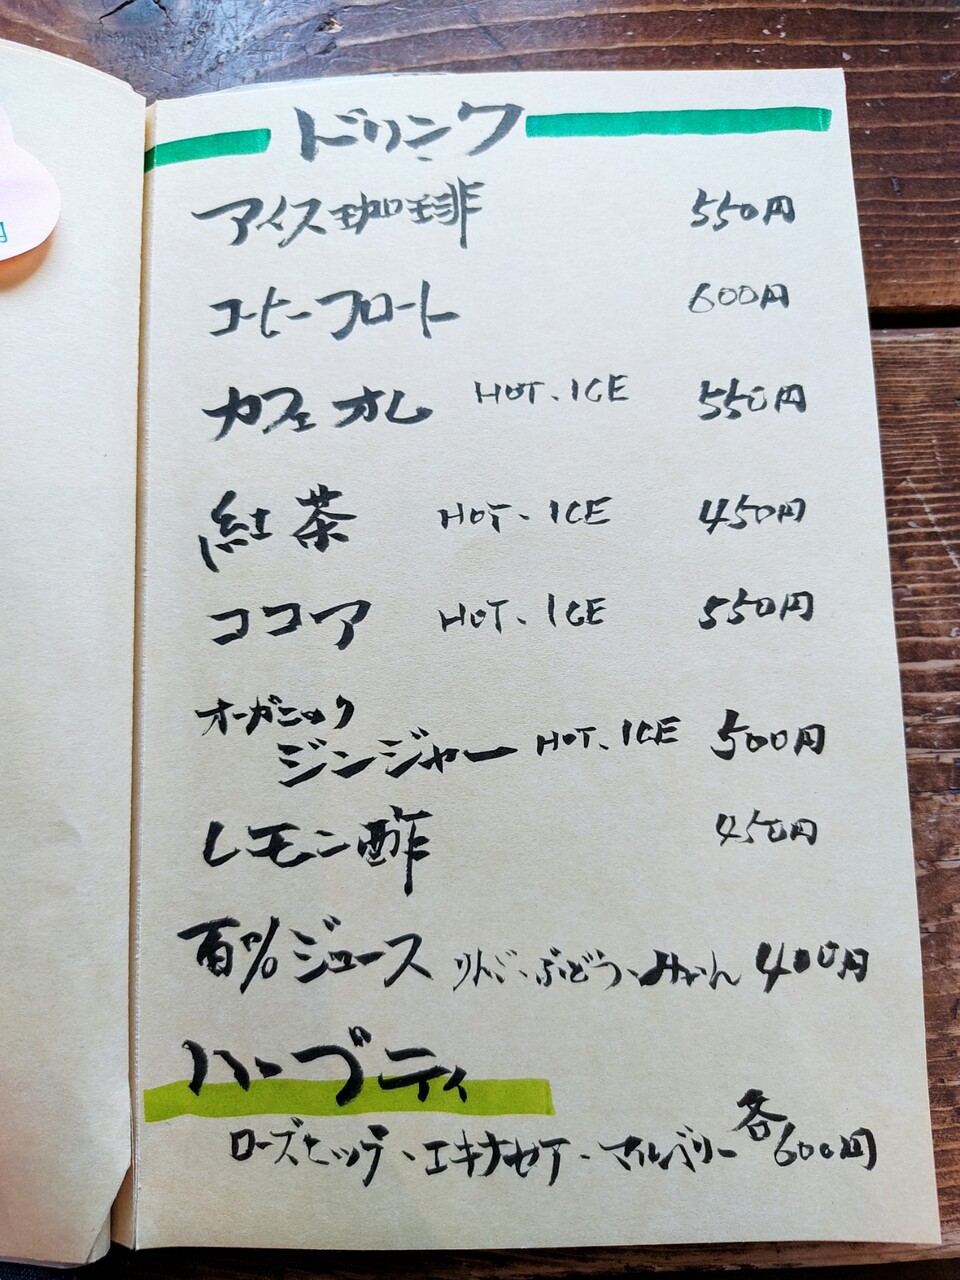 ドリンク
アイス珈琲 550円
コーヒーフロート 600円
カフェオレ HOT、ICE 550円
紅茶 HOT・ICE 450円
ココア HOT、ICE 550円
オーガニック
ジンジャー HOT、ICE 500円
レモン酢 450円
百%ジュース りんご・ぶどう・みかん 400円
ハーブティ
ローズヒップ、エキナセア・マルベリー 各600円
円